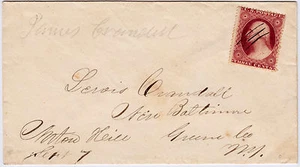 James Crandall
U.S. POSTAGE
THREE CENTS
Lewis Crandall
New Baltimore
Greene Co
N.Y.
Sept 7